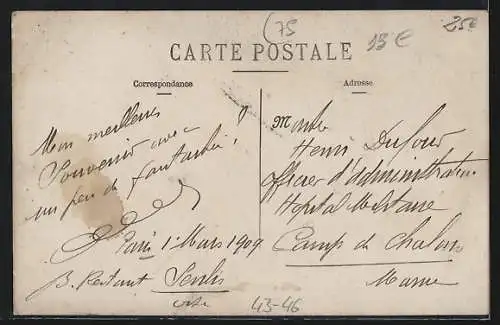 (75
25€
15€
CARTE POSTALE
Correspondance
Adresse
Mon meilleur
Souvenir avec
un peu de fantaisie!
Paris 1 Mars 1909
B. Restant Senlis
oise
Monsieur
Henri Dufour
officier d'administration
Hopital Militaire
Camp de Chalons
Marne
43-46